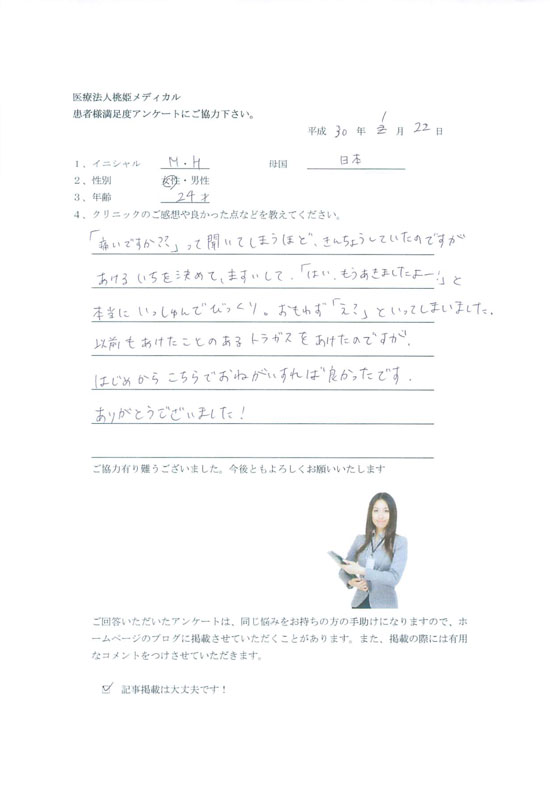 医療法人桃姫メディカル
患者様満足度アンケートにご協力下さい。
平成 30 年 1 月 22 日
1、イニシャル M・H 母国 日本
2、性別 女性・男性
3、年齢 24才
4、クリニックのご感想や良かった点などを教えてください。
「痛いですか??」って聞いてしまうほど、きんちょうしていたのですが
あけるいちを決めて、ますいして、「はい、もうあきましたよー!」と
本当にいっしゅんでびっくり。おもわず「え?」といってしまいました。
以前もあけたことのあるトラガスをあけたのですが、
はじめからこちらでおねがいすれば良かったです。
ありがとうございました!
ご協力有り難うございました。今後ともよろしくお願いいたします
ご回答いただいたアンケートは、同じ悩みをお持ちの方の手助けになりますので、ホ
ームページのブログに掲載させていただくことがあります。また、掲載の際には有用
なコメントをつけさせていただきます。
✓ 記事掲載は大丈夫です!